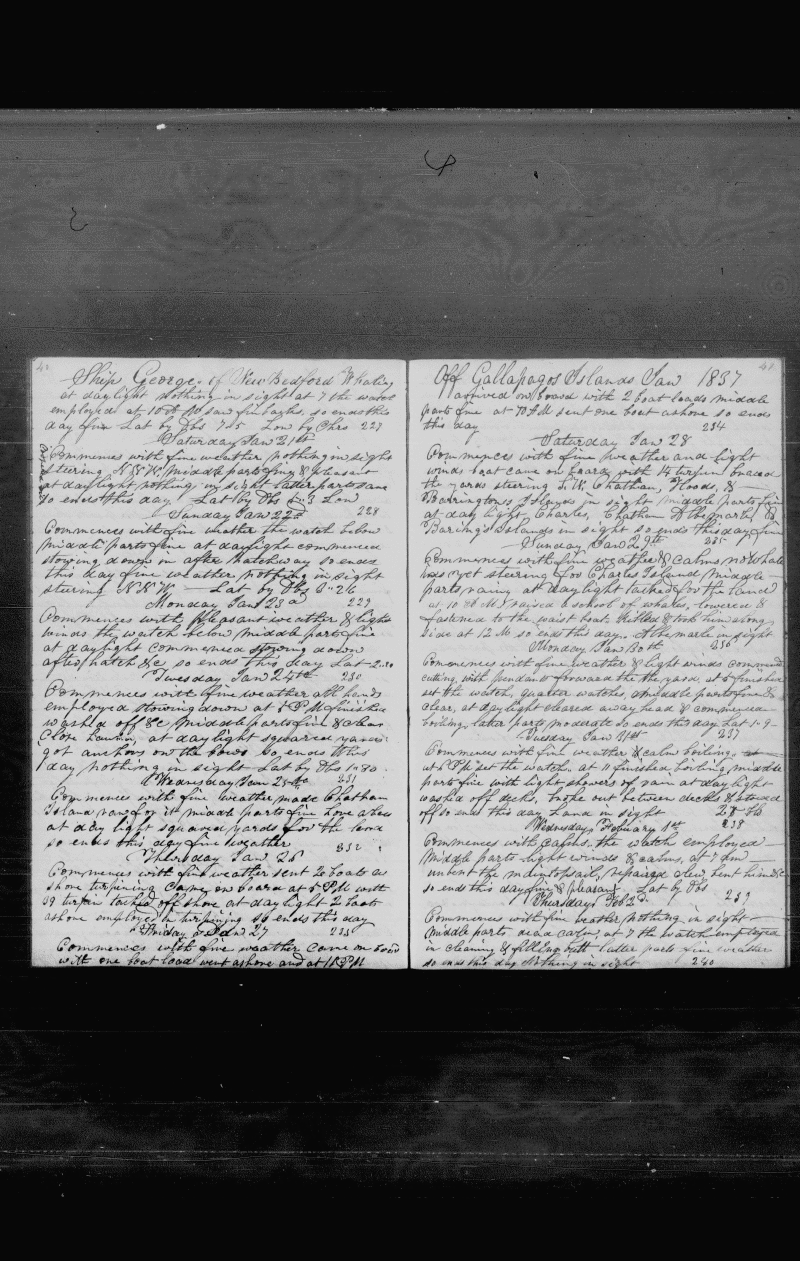 Ship George of New Bedford Whaling
at daylight nothing in sight at 7 the watch
employed at 10 saw finbacks, so ends this
day fine Lat by Obs 7"45 Lon by Chrs 227
Saturday Jan 21st
Commences with fine weather nothing in sight
steering N.N.W. middle parts fine & pleasant
at daylight nothing in sight latter parts same
so ends this day Lat by Obs 3 Lon
Sunday Jan 22d 228
Commences with fine weather the watch below
middle parts fine at daylight commenced
stowing down in after hatchway so ends
this day fine weather, nothing in sight
steering N.N.W. Lat by Obs 26
Monday Jan 23d 229
Commences with pleasant weather & light
winds the watch below middle parts fine
at daylight commenced stowing down
after hatch &c so ends this day Lat 2.30
Tuesday Jan 24th 230
Commences with fine weather all hands
employed stowing down at PM finished
washed off &c middle parts fine & clear
close hauled at daylight squared yards
got anchors on the bows So ends this
day nothing in sight Lat by Obs 1"30
Wednesday Jan 25th 231
Commences with fine weather made Chatham
Island ran for it middle parts fine hove aback
at day light squared yards for the land
so ends this day fine weather
Thursday Jan 26 232
Commences with fine weather sent 2 boats as
shore turpining came on board at 5 PM with
39 turpin tacked off shore at daylight 2 boats
ashore employed in turpining so ends this day
Friday Jan 27 233
Commences with fine weather came on board
with one boat load went ashore and at 12 PM
41
Off Gallapagos Islands Jan 1837
arrived on board with 2 boat loads middle
parts fine at 10 AM sent one boat ashore so ends
this day 234
Saturday Jan 28
Commences with fine weather and light
winds boat came on board with 14 turpin braced
the yards steering S.W. Chatham, Hoods, &
Barringtons Islands in sight middle parts fine
at day light Charles, Chatham Albemarle &
Baring's Islands in sight so ends this day fine
Sunday Jan 29th 235
Commences with fine weather & calms no whales
as yet steering for Charles Island middle
parts rainy at daylight tacked for the land
at 10 AM raised a school of whales, lowered &
fastened to the waist boat. Killed & took him along
side at 12 M so ends this day. Albemarle in sight
Monday Jan 30th 236
Commences with fine weather & light winds commenced
cutting, with pendants forward the the yard, at 5 finished
set the watch, quarter watches, middle parts fine &
clear, at daylight cleared away head & commenced
boiling latter parts moderate so ends this day Lat 1-9-
Tuesday Jan 31st 237
Commences with fine weather & calm boiling
at 6 PM set the watch. at 11 finished boiling, middle
parts fine with light showers of rain at day light
washed off decks, broke out between decks & stowed
off so ends this day Land in sight
Wednesday February 1st 238
Commences with calms, the watch employed
Middle parts light winds & calms, at 7 AM
unbent the main topsail, repaired clew, bent him &c
so ends this day fine & pleasant Lat by Obs
Thursday Feb 2d 239
Commences with fine weather, nothing in sight
middle parts dead calm, at 7 the watch employed
in cleaning & filling latter parts fine weather
so ends this day Nothing in sight 240